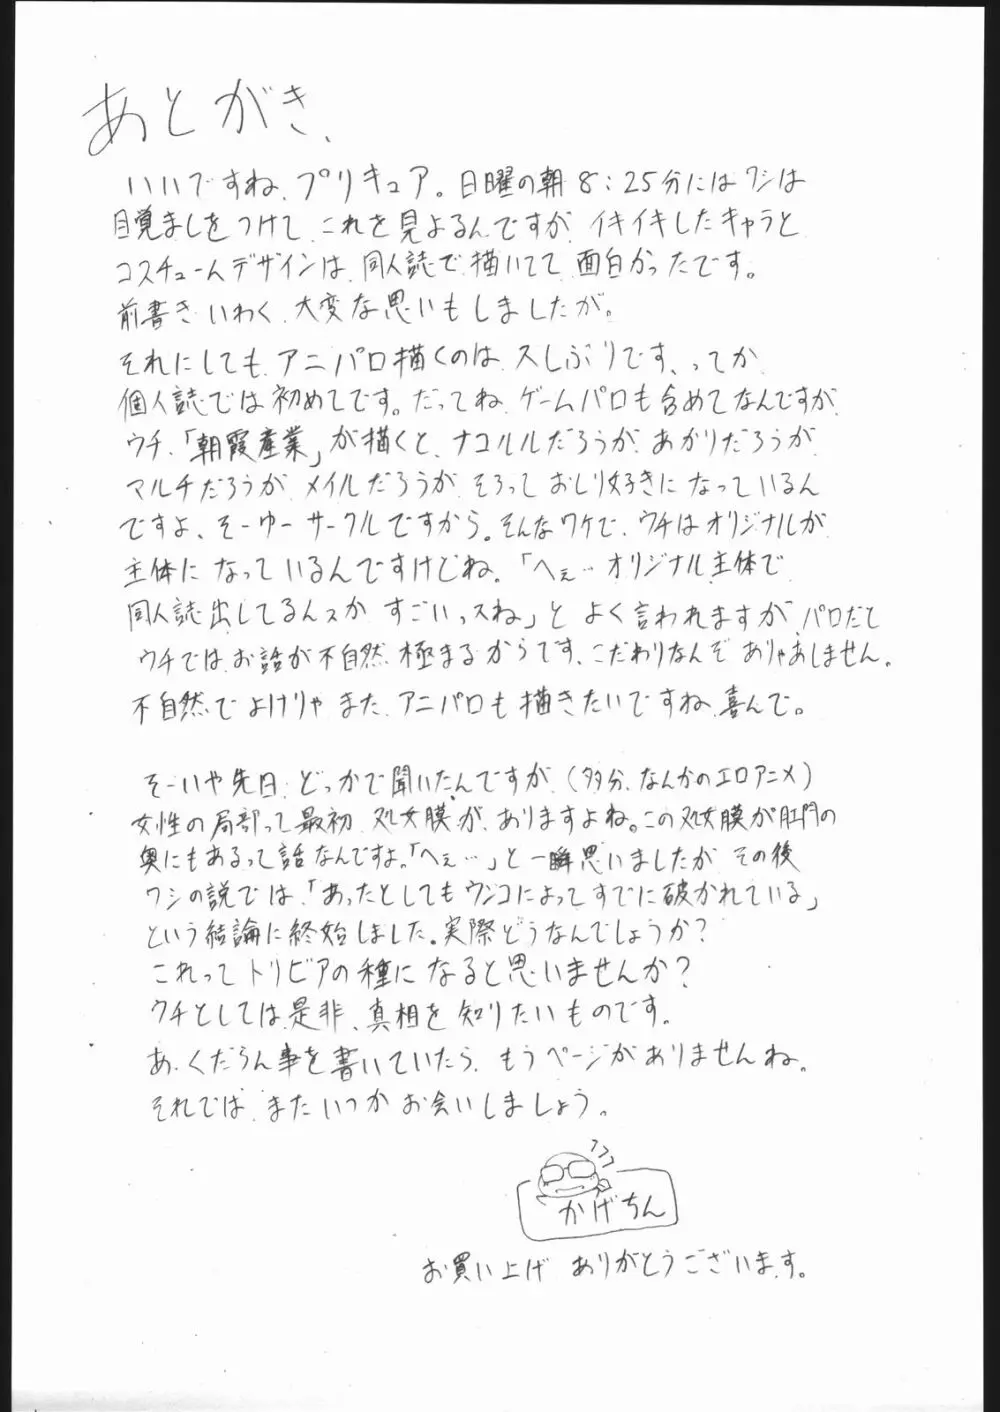 あとがき、
いいですね、プリキュア。日曜の朝8:25分にはワシは
目覚ましをつけて、これを見よるんですが、イキイキしたキャラと
コスチュームデザインは、同人誌で描いてて、面白かったです。
前書きいわく、大変な思いもしましたが。
それにしても、アニパロ描くのは、久しぶりです、ってか、
個人誌では初めてです。だってね、ゲームパロも含めてなんですが、
ウチ、「朝霞産業」が描くと、ナコルルだろうが、あかりだろうが、
マルチだろうが、メイルだろうが、そろっておしり好きになっているん
ですよ、そーゆーサークルですから。そんなワケで、ウチはオリジナルが
主体になっているんですけどね。「へぇ…オリジナル主体で
同人誌出してるんスか、すごいっスね」と、よく言われますが、パロだと
ウチでは、お話が不自然極まるからです、こだわりなんぞありゃあしません。
不自然でよけりゃ、また、アニパロも描きたいですね、喜んで。
そーいや先日、どっかで聞いたんですが、(多分、なんかのエロアニメ)
女性の局部って最初、処女膜が、ありますよね。この処女膜が肛門の
奥にもあるって話なんですよ。「へぇ…」と一瞬思いましたが、その後
ワシの説では、「あったとしてもウンコによってすでに破かれている」
という結論に終始しました。実際どうなんでしょうか?
これってトリビアの種になると思いませんか?
ウチとしては是非、真相を知りたいものです。
あ、くだらん事を書いていたら、もうページがありませんね。
それでは、またいつかお会いしましょう。
フフフ
かげちん
お買い上げ ありがとうございます。